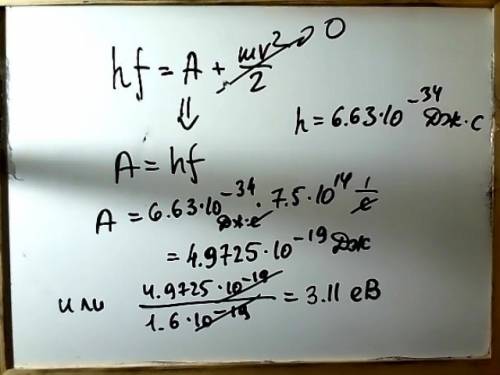 hf = A + mv²/2 → 0
h = 6.63·10⁻³⁴ Дж·с
⇓
A = hf
A = 6.63·10⁻³⁴ Дж·с · 7.5·10¹⁴ 1/с
= 4.9725·10⁻¹⁹ Дж
или 4.9725·10⁻¹⁹/1.6·10⁻¹⁹ = 3.11 еВ